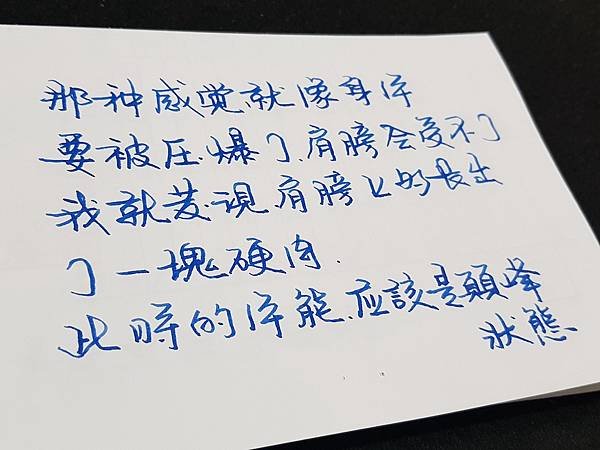 那种感覚就像身体
要被压爆了.肩膀会受不了
我就发現肩膀上的長出
了一塊硬肉.
此時的体能.应該是顛峰
狀態